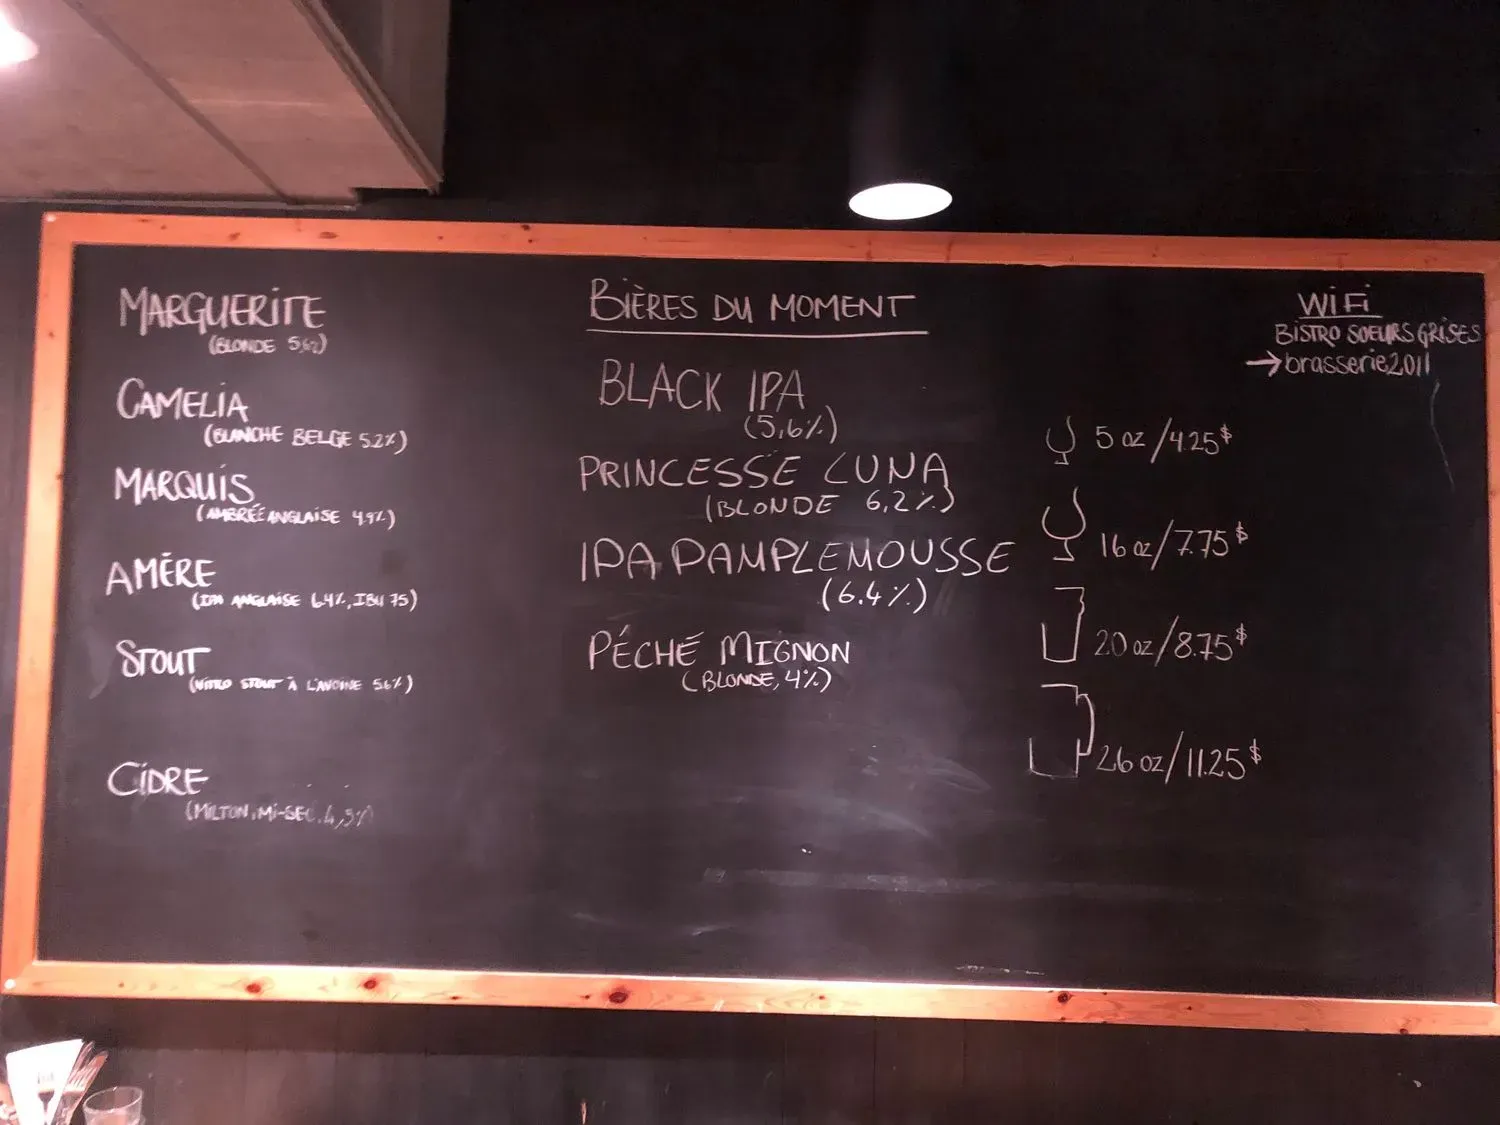 MARGUERITE
(BLONDE 5,6%)
CAMELIA
(BLANCHE BELGE 5.2%)
MARQUIS
(AMBRÉE ANGLAISE 4.9%)
AMÈRE
(IPA ANGLAISE 6.4%, IBU 75)
STOUT
(NITRO STOUT À L'AVOINE 5.6%)
CIDRE
(MILTON, MI-SEC, 4,3%)
BIÈRES DU MOMENT
BLACK IPA
(5,6%)
PRINCESSE LUNA
(BLONDE 6,2%)
IPA PAMPLEMOUSSE
(6.4%)
PÉCHÉ MIGNON
(BLONDE, 4%)
5 oz/4.25$
16 oz/7.75$
20 oz/8.75$
26 oz/11.25$
WiFi
BISTRO SOEURS GRISES
→brasserie2011